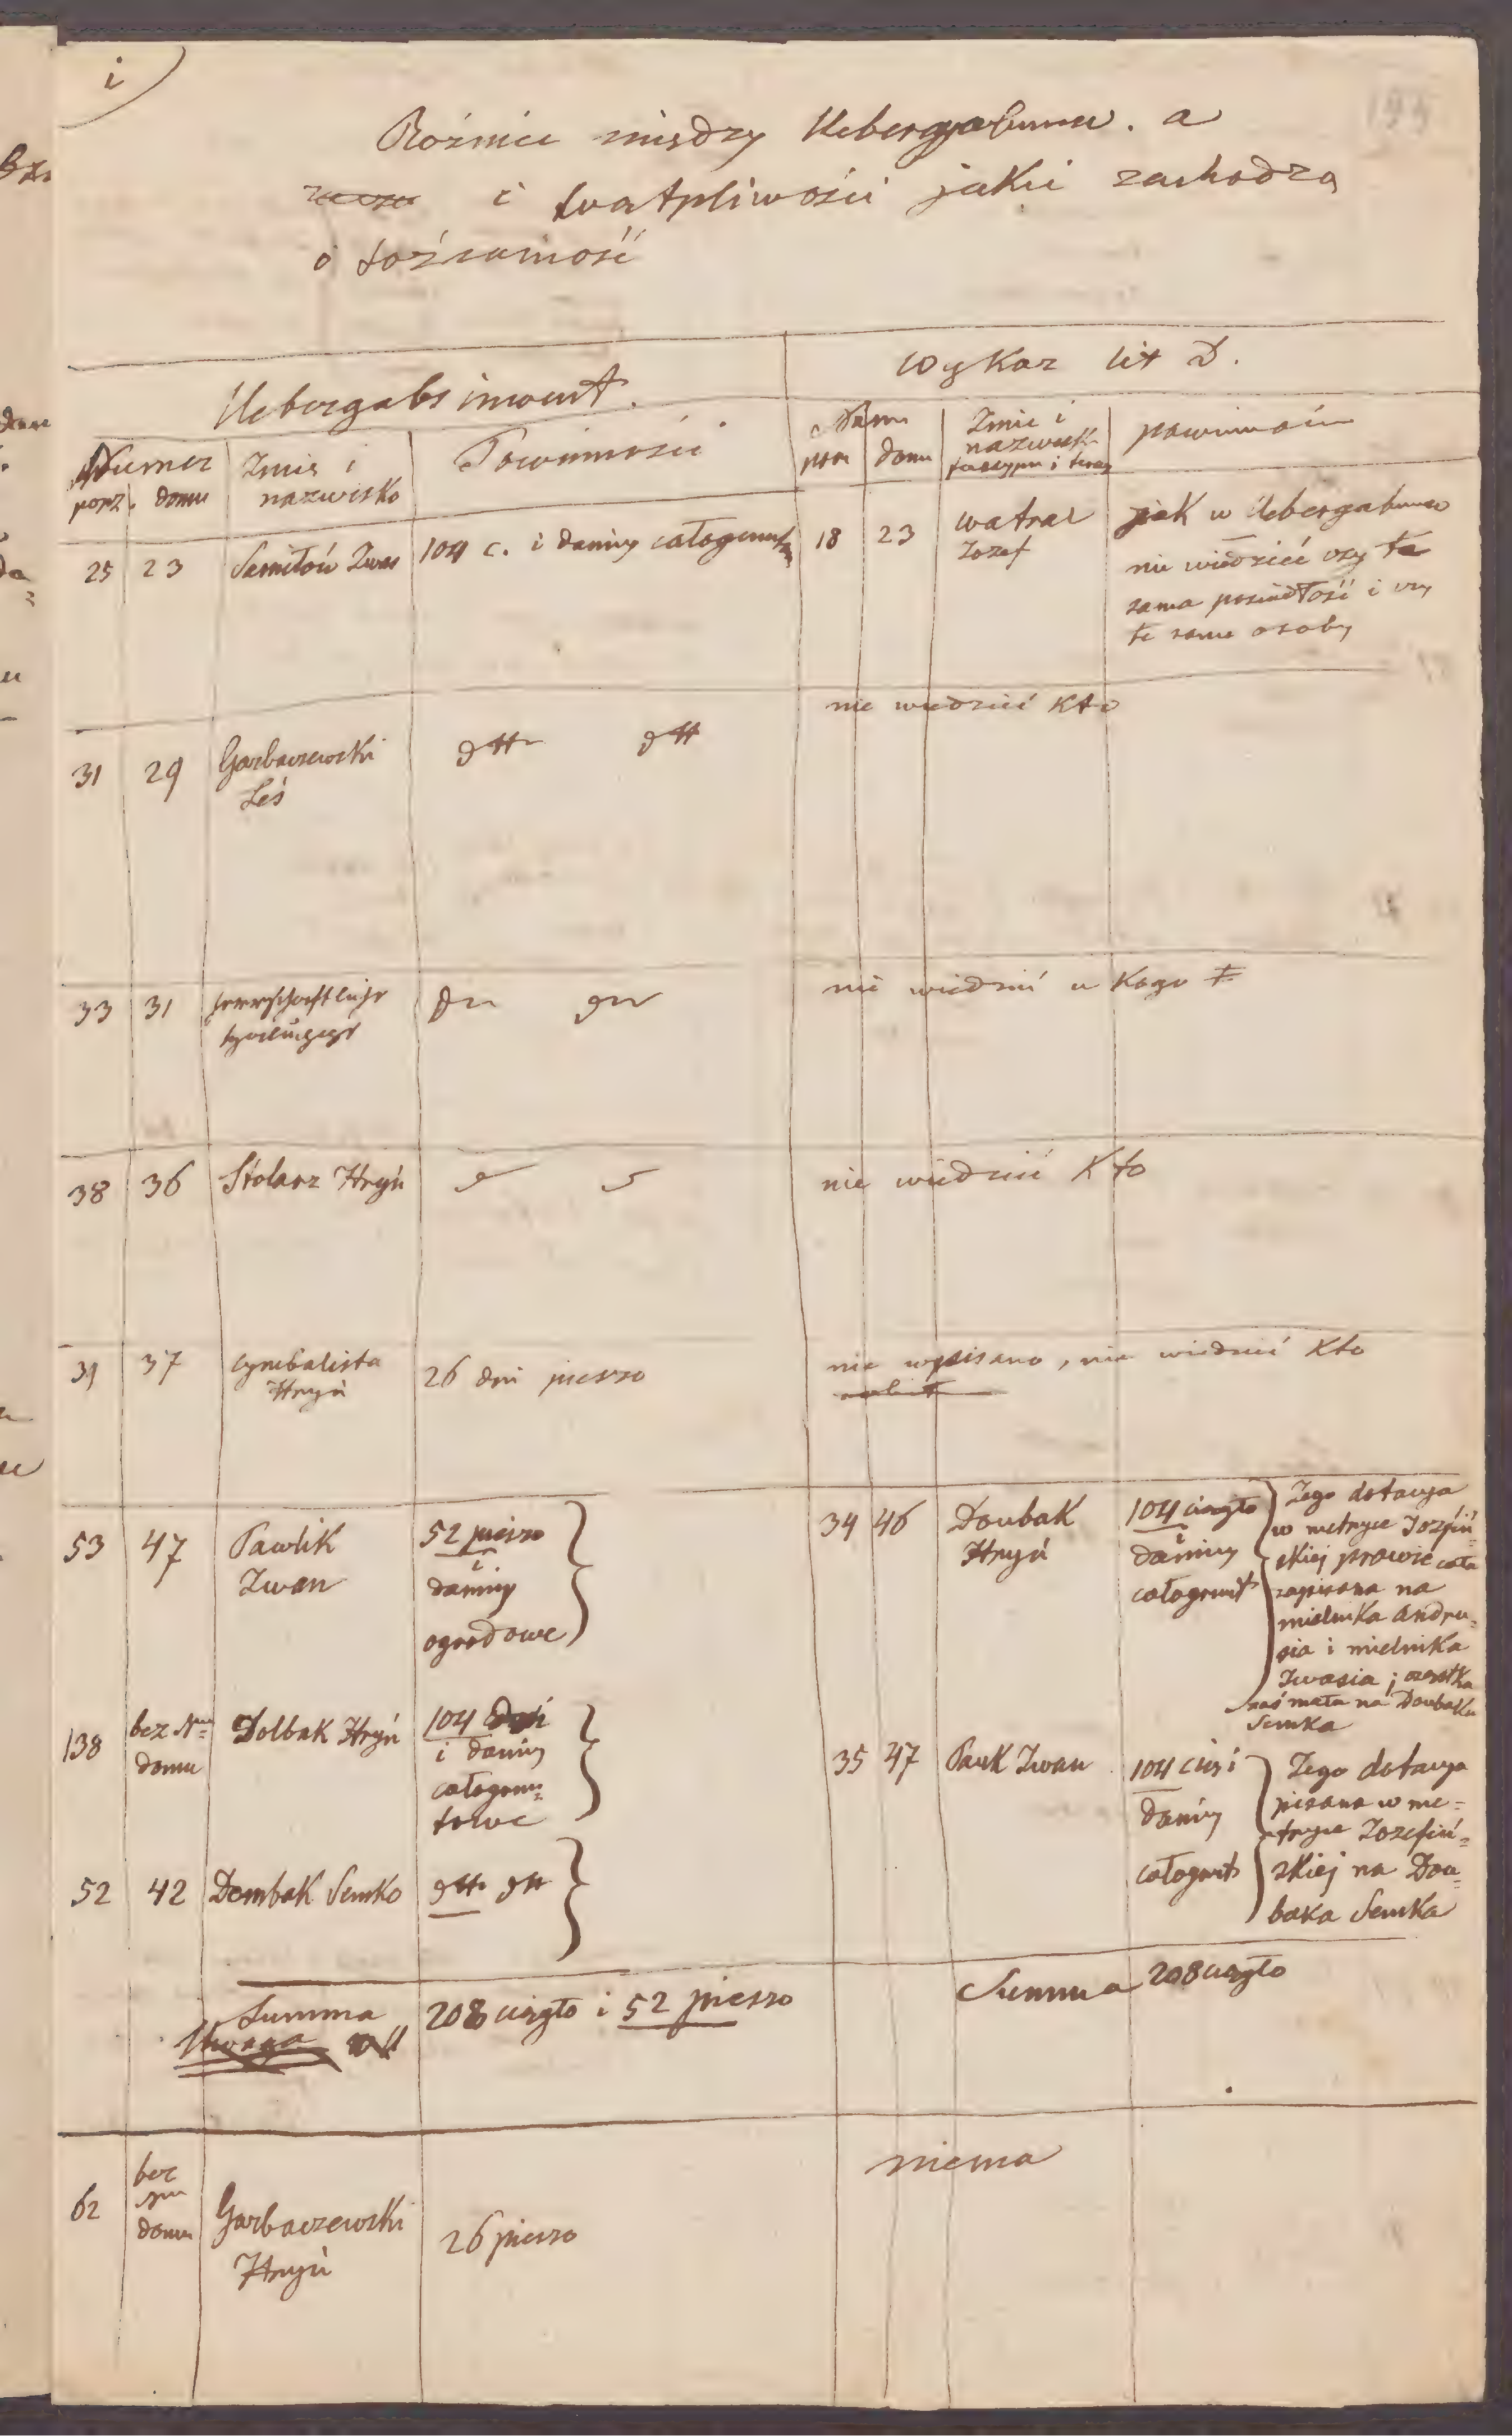 i
195
Rożnice między Uebergabinw. a
i wątpliwości jakie zachodzą
o tożsamość
Uebergabs inwent.
Wykaz lit D.
Numer
porz. domu
Imie i
nazwisko
Powinności
Num
porz domu
Imie i
nazwisk
powinnośc
25 23 Semiłów Iwas 104 c. i daniny całogrunt
18 23 Watral
Jozef
jak w Uebergabinw
nie wiedzieć czy ta
sama posiadłość i czy
te same osoby
31 29 Garbaczewski
Leś
dtt dtt
nie wiedzieć kto
33 31 herrschaftliche
dtt dtt
nie wiedzieć u kogo
38 36 Stolarz Hryń
nie wiedzieć Kto
39 37 Cymbalista
Hryń
26 dni pieszo
nie wpisano, nie wiedzieć Kto
53 47 Pawlik
Iwan
52 pieszo
i
daniny
ogrodowe
34 46 Doubak
Hryń
104 ciągło
i
daniny
całogrunt
Tego dotacya
w metryce Jozefiń=
skiej prawie cała
zapisana na
mielnika Andru=
sia i mielnika
Iwasia; cząstka
zaś mała na Doubaka
Semka
138 bez Nru
domu
Dolbak Hryń
104 dni
i daniny
całogrun=
towe
35 47 Pauk Iwan
104 ciąg i
daniny
całogrunt
Tego dotacya
pisana w me=
tryce Jozefiń=
skiej na Dou=
baka Semka
52 42 Dombak Semko dtt dtt
Summa 208 ciągło i 52 pieszo
Summa 208 ciągło
Uwaga
62 bez
Nru
domu
Garbaczewski
Hryń
26 pieszo
niema